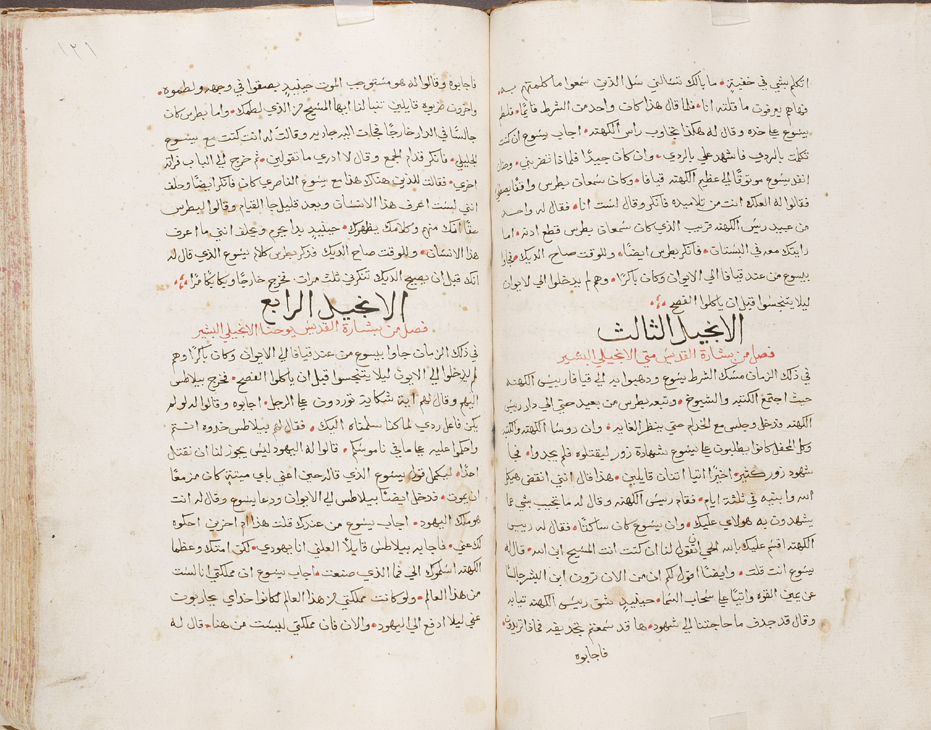 اتكلم بشي في خفية، ما بالك تسالني سل الذين سمعوا ما كلمتهم به
فهاهم يعرفون ما قلته انا، فلما قال هذا كان واحد من الشرط قايمًا، فلطم
يسوع على خده وقال له هكذا تجاوب راس الكهنه، اجاب يسوع ان كنت
تكلمت بالردي فاشهد علي بالردي، وان كان جيدًا فلماذا تضربني،
انفد يسوع موثوقًا الى عظيم الكهنه قيافا، وكان سمعان بطرس واقفًا يصطلي
فقالوا له العلك انت من تلاميده فانكر وقال لست انا، فقال له واحد
من عبيد رييس الكهنه قريب الذي كان سمعان بطرس قطع ادنه، اما
رايتك معه في البستان، فانكر بطرس ايضًا، وللوقت صاح الديك، فجاوا
بيسوع من عند قيافا الى الايوان وكان باكرًا، وهم لم يدخلوا الى الايوان
ليلا يتنجسوا قبل ان ياكلوا الفصح
الانجيل الثالث
فصل من بشارة القديس متى الانجيلي البشير
في دلك الزمان مسك الشرط يسوع ودهبوا به الى قيافا رييس الكهنه
حيث اجتمع الكتبه والشيوخ، وتبعه بطرس من بعيد حتى الى دار رييس
الكهنه ودخل وجلس مع الخدام حتى ينظر الغايه، وان روسا الكهنه
وكل المحفل كانوا يطلبون على يسوع شهادة زور ليقتلوه فلم يجدوا، فجا
شهود زور كثير، اخيرًا اتيا اتنان قايلين، هدا قال انني انقض هيكل
الله وابنيه في ثلثة ايام، فقام رييس الكهنه وقال له ما تجيب بشي عما
يشهدون به هولاي عليك، وان يسوع كان ساكتًا، فقال له رييس
الكهنه اقسم عليك بالله الحي ان تقول لنا ان كنت انت المسيح ابن الله، قال له
يسوع انت قلت، وايضًا اقول لكم ان من الان ترون ابن البشر جالسًا
عن يمين القوه واتيًا على سحاب السما، حينيدٍ شق رييس الكهنه تيابه
وقال قد جدف ما حاجتنا الى شهود، ها قد سمعتم تجديفه فماذا ترون
فاجابوه
١٢١
فاجابوه وقالوا له هو مستوجب الموت حينيدٍ بصقوا في وجهه ولطموه،
واخرون ضربوه قايلين تنبا لنا ايها المسيح من الذي لطمك، واما بطرس كان
جالسًا في الدار خارجًا فجات اليه جاريه وقالت له انت كنت مع يسوع
الجليلي، فانكر قدام الجمع وقال لا ادري ما تقولين، ثم خرج الى الباب فراته
اخري، فقالت للذين هناك هذا مع يسوع الناصري كان فانكر ايضًا وحلف
انني لست اعرف هذا الانسان وبعد قليل جا القيام وقالوا لبطرس
حقًا انك منهم وكلامك يظهرك، حينيدٍ بدا يحرم ويحلف انني ما اعرف
هذا الانسان، وللوقت صاح الديك فدكر بطرس كلام يسوع الذي قال له
انك قبل ان يصيح الديك تنكرني ثلث مرات، فخرج خارجًا وبكا بكًا مرًا
الانجيل الرابع
فصل من بشارة القديس يوحنا الانجيلي البشير
في ذلك الزمان جاوا بيسوع من عند قيافا الى الايوان وكان باكرًا وهم
لم يدخلوا الى الايوان ليلا يتنجسوا قبل ان ياكلوا الفصح، فخرج بيلاطس
اليهم وقال لهم اية شكاية توردون على الرجل، اجابوه وقالوا له لو لم
يكن فاعل ردي لما كنا سلمناه اليك، فقال لهم بيلاطس خدوه انتم
واحكموا عليه على ما في ناموسكم، قالوا له اليهود ليس يجوز لنا ان نقتل
احدًا، ليكمل قول يسوع الذي قاله حين اعني باي ميتةٍ كان مزمعًا
ان يموت، فدخل ايضًا بيلاطس الى الايوان ودعا يسوع وقال له انت
هو ملك اليهود، اجاب يسوع من عندك قلت هذا ام اخرين احكوه
لك عني، فاجابه بيلاطس قايلًا العلني انا يهودي، لكن امتك وعظما
الكهنه اسلموك الي فما الذي صنعت، اجاب يسوع ان مملكتي انا ليست
من هذا العالم، ولو كانت مملكتي من هذا العالم لكانوا خدامي يحاربون
عني ليلا ادفع الى اليهود، والان فان مملكتي ليست من هنا، قال له